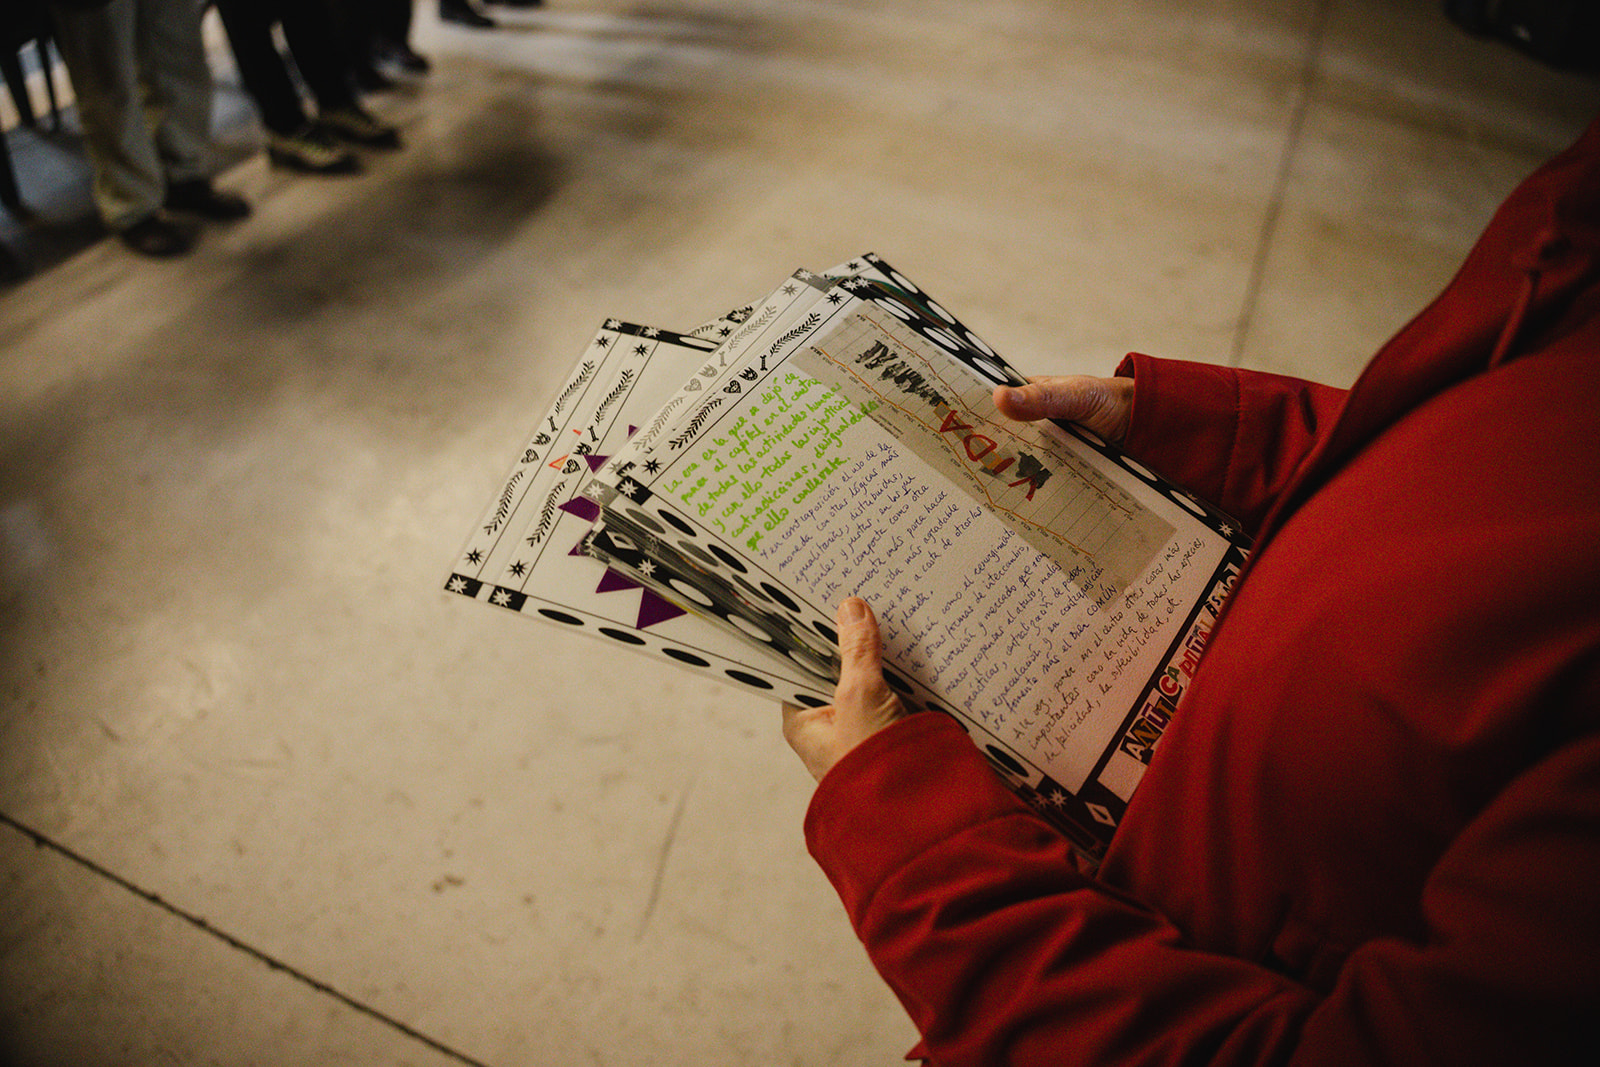 VIDA
La era en la que se dejó de
poner al capital en el centro
de todas las actividades humanas
y con ello todas las injusticias,
contradicciones, desigualdades
que ello conlleva.
Y en contraposición el uso de la
moneda con otras lógicas más
igualitarias, distribuidas,
sociales y justas, en las que
esta se comporta como otra
herramienta más para hacer
la vida más agradable
y que sea a costa de otros/as
o el planeta.
También como el resurgimiento
de otras formas de intercambio,
colaboración y mercado que sean
menos propensas al abuso, malas
prácticas, centralización de poder,
de especulación y en contraposición
se fomente más el bien COMÚN
A la vez, poner en el centro otras cosas más
importantes como la vida de todas las especies,
la felicidad, la sostenibilidad, etc.
ANTICAPITAL